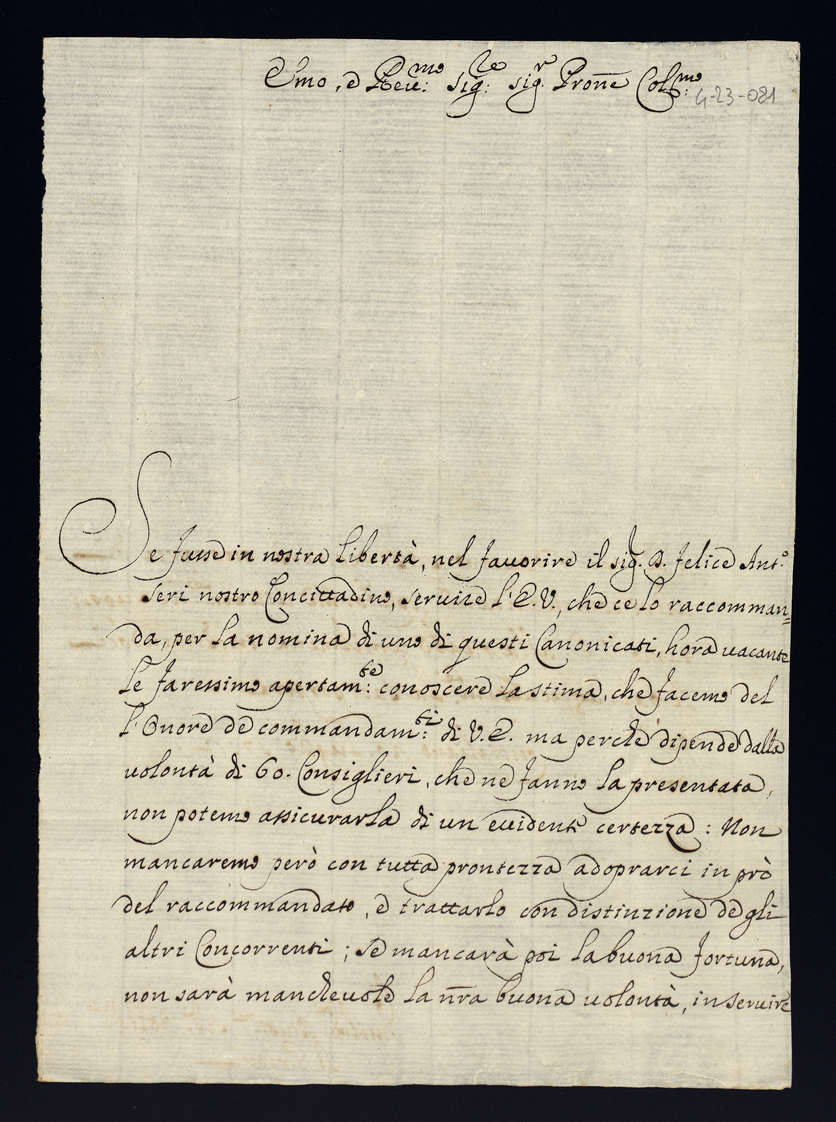 Emo, e Reu:mo sig:re sig:r Proñe Col:mo
G-23-081
Se fusse in nostra libertà, nel fauorire il sig: D. Felice Ant:o
seri nostro Concittadino, seruire l'E.V., che ce lo raccomman=
da, per la nomina di uno di questi Canonicati, hora uacante
le faressimo apertam:te conoscere la stima, che facemo del
l'Onore de commandam:ti di V.E. ma perche dipende dalla
uolontà di 60. Consiglieri, che ne fanno la presentata,
non potemo assicurarla di un euidente certezza: Non
mancaremo però con tutta prontezza adoprarci in prò
del raccommandato, e trattarlo con distinzione de gli
altri Concorrenti; se mancarà poi la buona fortuna,
non sarà mancheuole la ñra buona uolontà, in seruire